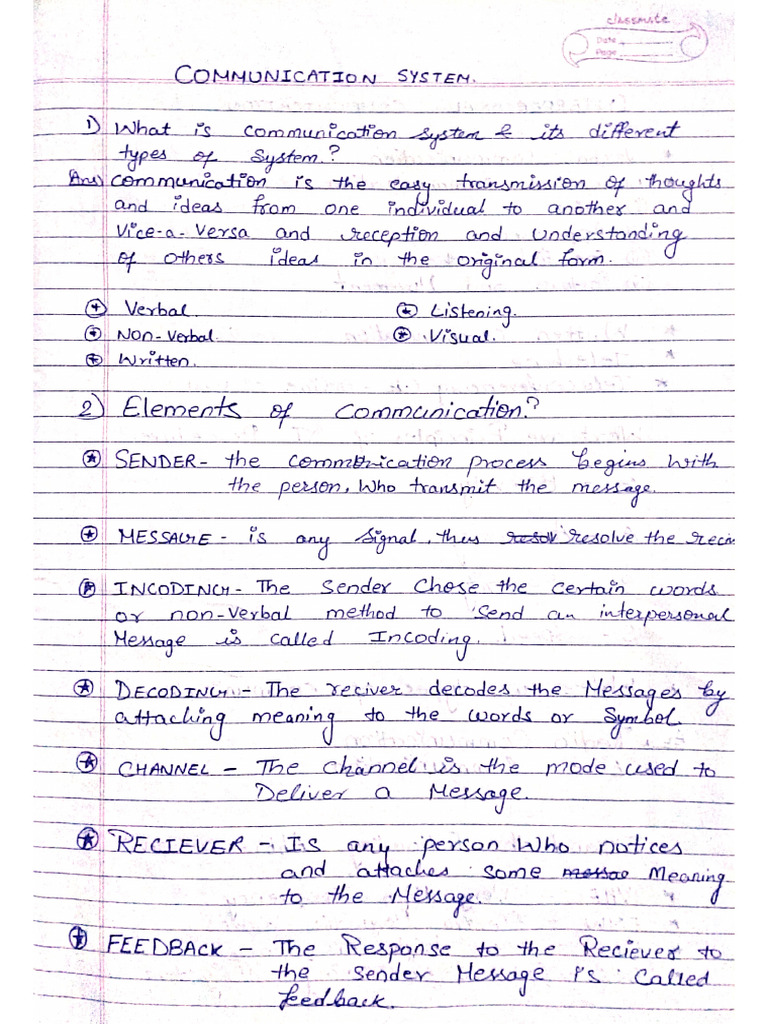 classmate
Date
Page
COMMUNICATION SYSTEM.
1) What is communication system & its different
types of system.?
Ans) communication is the easy transmission of thoughts
and ideas from one individual to another and
vice-a-versa and reception and understanding
of others ideas in the original form.
Verbal. Listening.
Non-Verbal. Visual.
Written.
2) Elements of communication.?
SENDER- the communication process begins with
the person, who transmit the message.
MESSAGE - is any signal, thus resolve the
INCODING- The sender chose the certain words
or non-verbal method to send an interpersonal
Message is called Incoding.
DECODING - The reciver decodes the Messages by
attaching meaning to the words or Symbol.
CHANNEL - The channel is the mode used to
Deliver a Message.
RECIEVER - Is any person who notices
and attaches some Meaning
to the Message.
FEEDBACK - The Response to the Reciever to
the sender Message is called
feedback.